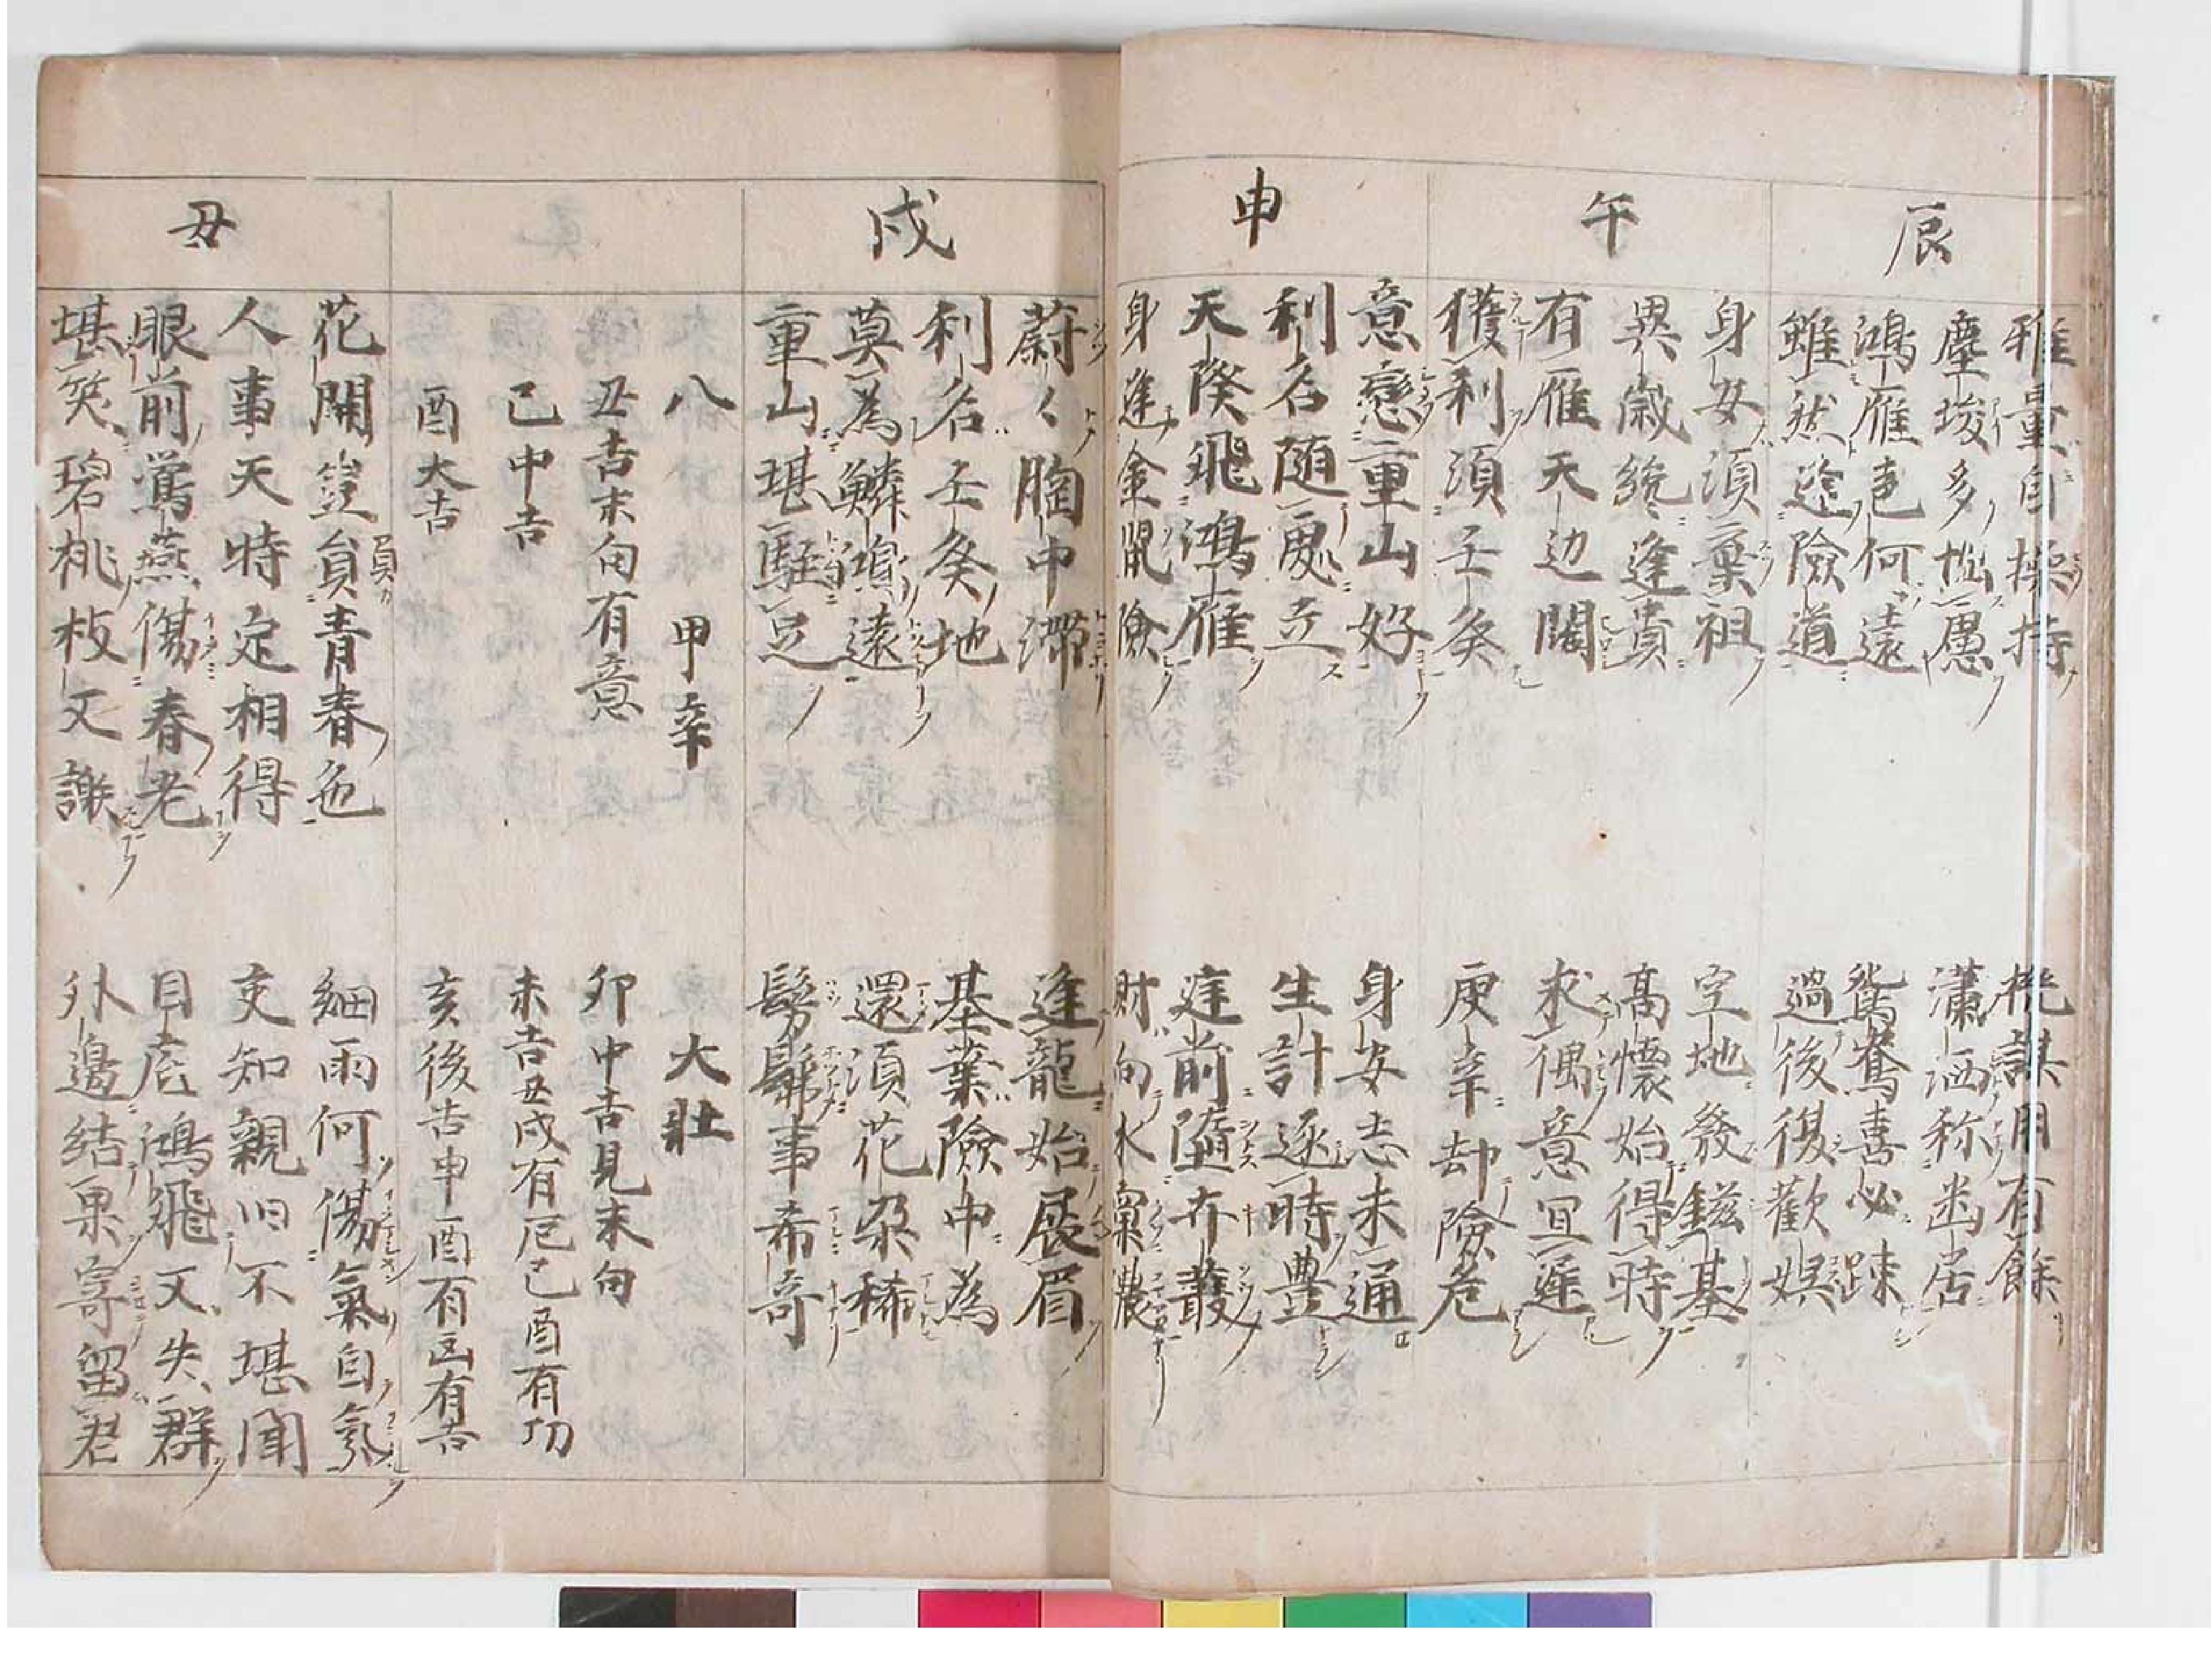 辰
雅量自操持 機謀用有餘
塵埃多拙愚 瀟洒称幽居
鴻雁邑何遠 鴛鴦喜必踈
雖然逢險道 過後得歡娯
午
身安須棄祖 空地發鎡基
異歳終逢貴 高懐始得時
有雁天边闊 求偶意宜遲
獲利須壬癸 庚辛却險危
申
意戀重山好 身安志未通
利名随處立 生計逐時豊
天際飛鴻雁 庭前墮卉叢
身逢金鼠險 財向水窠濃
戌
蔚々胸中滞 逢龍始展眉
利名壬癸地 基業險中為
莫為鱗鴻遠 還須花朶稀
重山堪駐足 髣髴事希奇
八 甲辛 大壯
丑吉末旬有意 卯中吉見末旬
己中吉 未吉丑戌有厄己酉有功
酉大吉 亥後吉申酉有凶有吉
丑
花開豈負青春色 細雨何傷氣自氛
人事天時定相得 交知親旧不堪聞
眼前鶯燕傷春老 目底鴻飛又失群
堪笑碧桃枝又謝 外邉結果寄留君